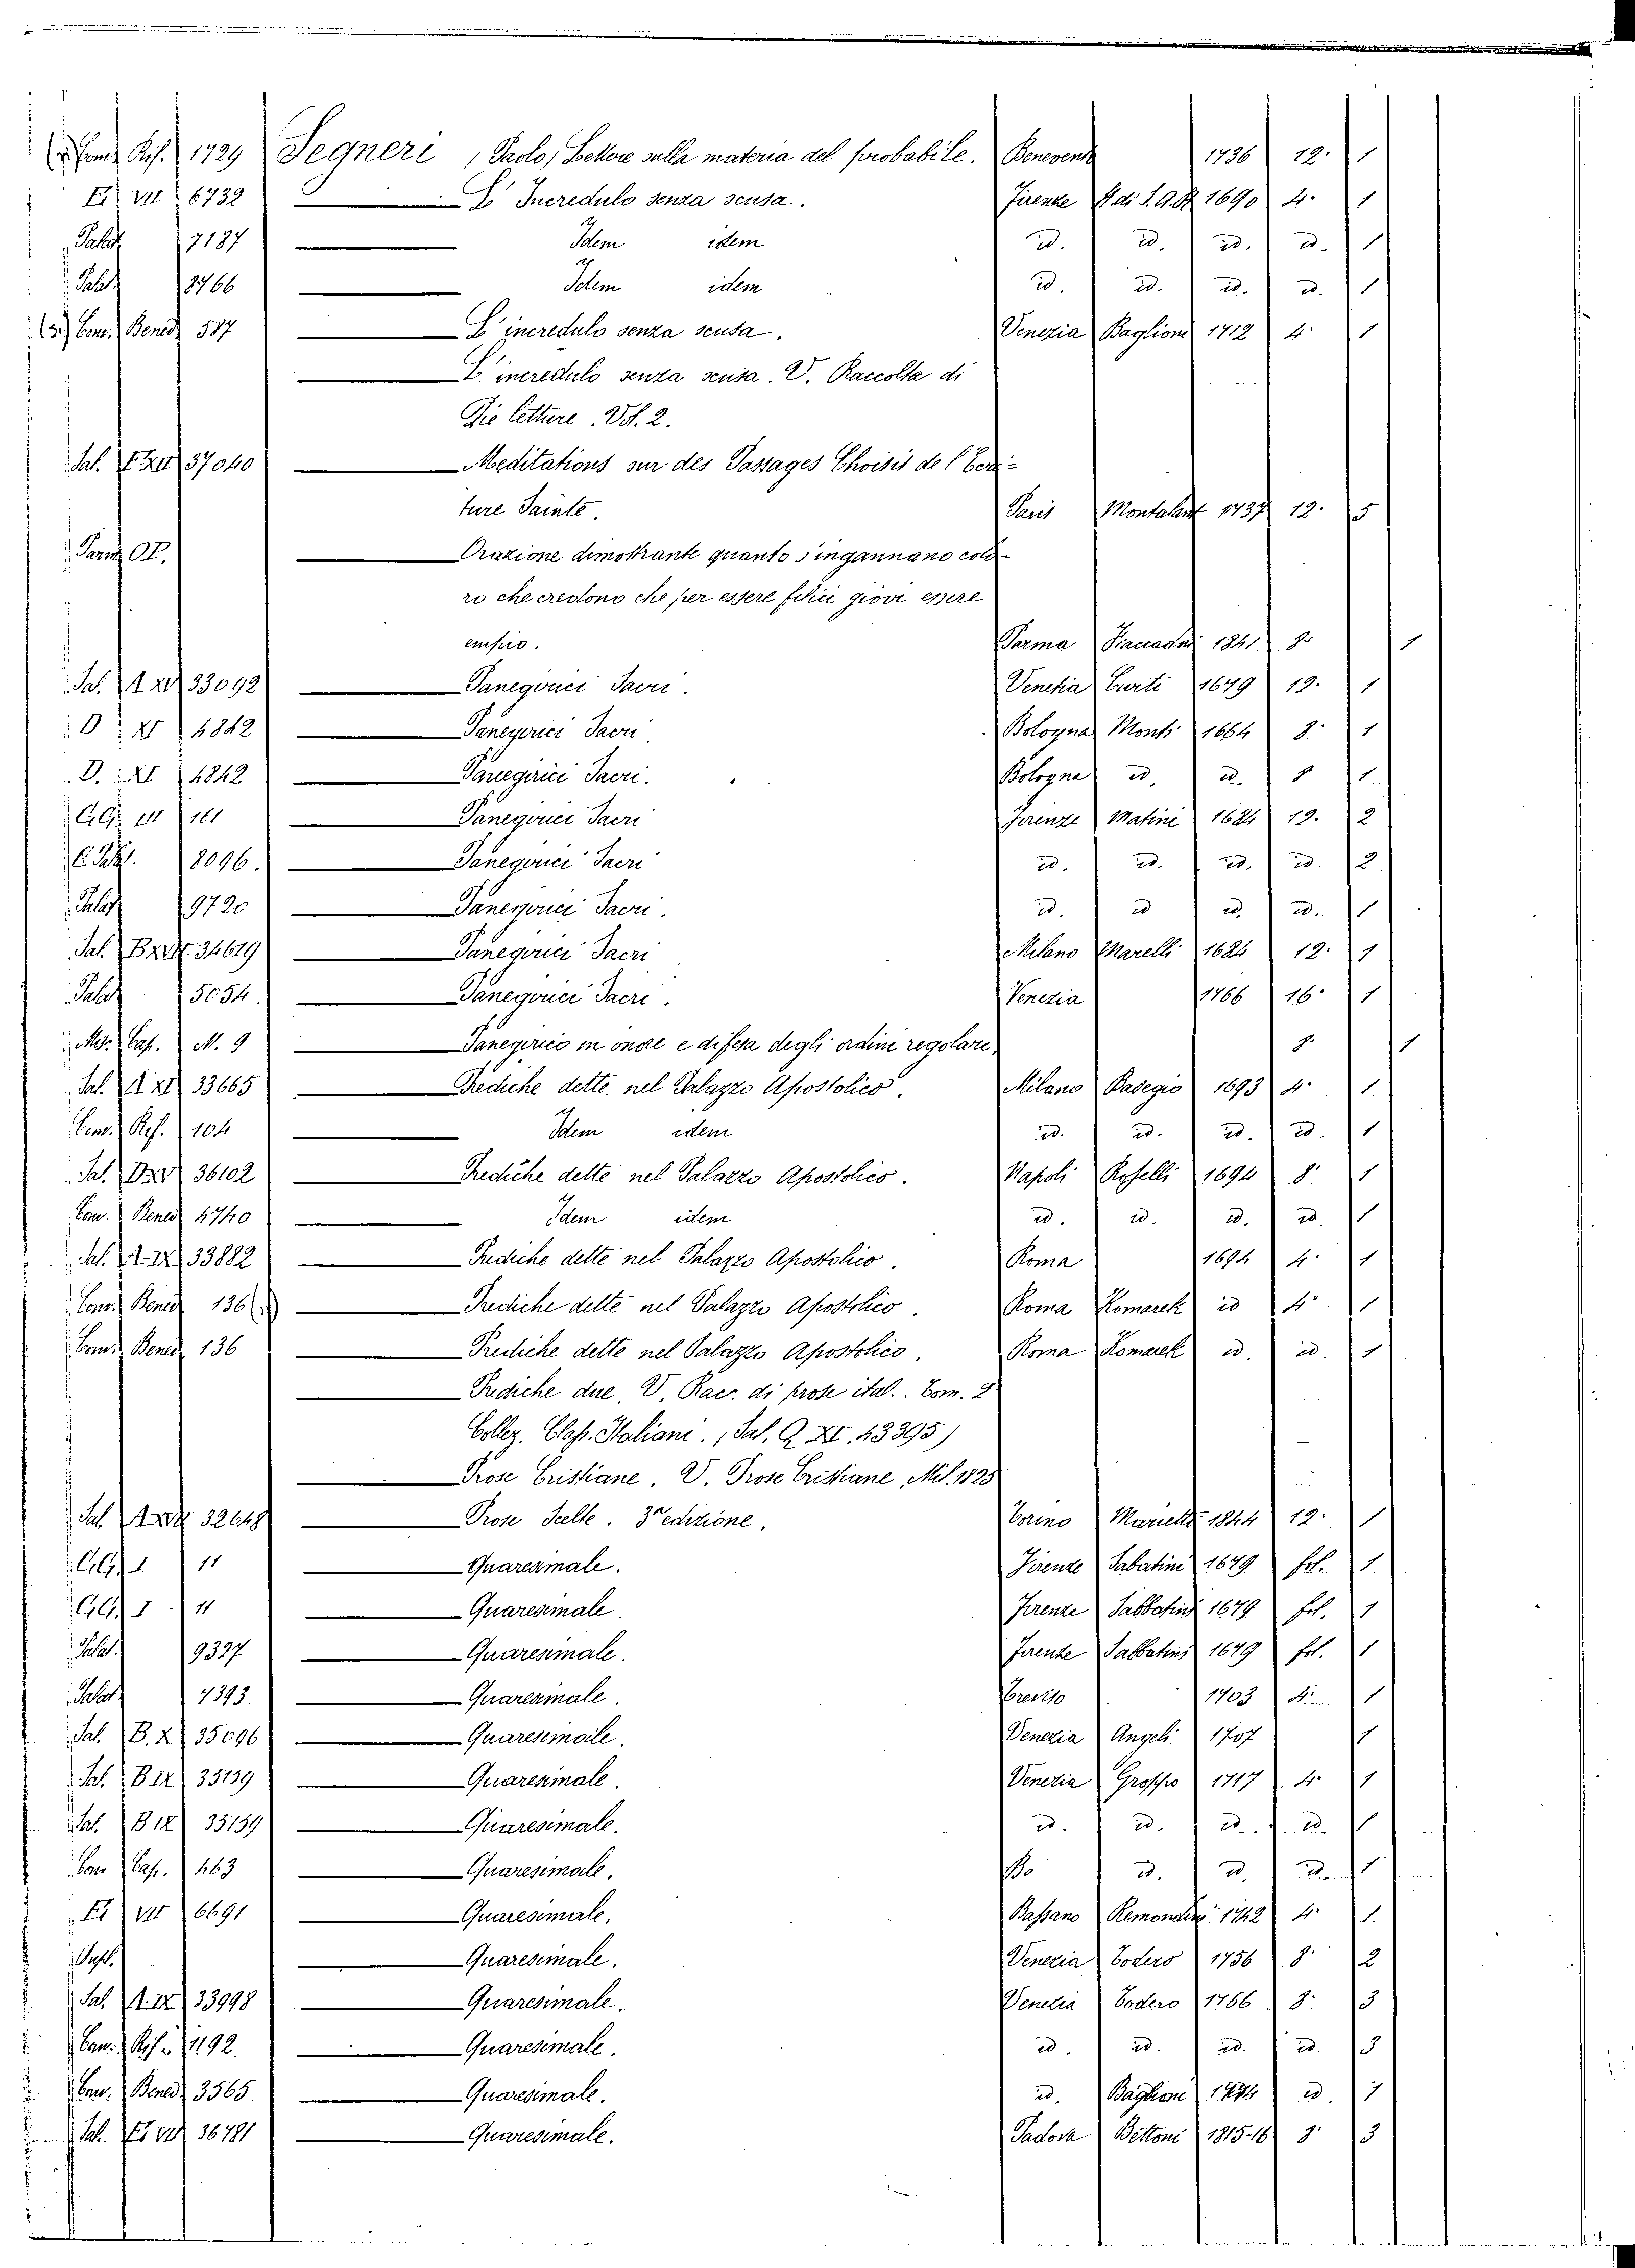 Conv. Rif. 1729 Segneri (Paolo) Lettere sulla materia del probabile. Benevento 1736 12. 1
EI VII 6732 L' Incredulo senza scusa. Firenze St. di S.A.R. 1690 4. 1
Palat. 7187 Idem idem id. id. id. id. 1
Palat. 8766 Idem idem id. id. id. id. 1
Conv. Bened. 587 L'incredulo senza scusa. Venezia Baglioni 1712 4. 1
L'incredulo senza scusa. V. Raccolta di
Pie letture. Vol. 2.
Sal. 37040 Meditations sur des Passages Choisis de l'Ecri-
ture Sainte. Paris Montalant 1737 12. 5
Orazione dimostrante quanto s'ingannano colo-
ro che credono che per essere felici giovi essere
empio. Parma Fiaccadori 1841. 8. 1
Sal. 33092 Panegirici Sacri. Venezia Curti 1679 12. 1
D XI 4842 Panegirici Sacri. Bologna Monti 1664 8. 1
D. XI 4842 Panegirici Sacri. Bologna id. id. 8 1
GG. VII 161 Panegirici Sacri Firenze Matini 1684 12. 2
Palat. 8096. Panegirici Sacri id. id. id. id. 2
Palat. 9720 Panegirici Sacri. id. id id. id. 1
Sal. 34619 Panegirici Sacri Milano Marelli 1684 12. 1
Palat. 5054. Panegirici Sacri. Venezia 1766 16. 1
Misc. Cap. M. 9 Panegirico in onore e difesa degli ordini regolari. 8. 1
Sal. A XI 33665 Prediche dette nel Palazzo Apostolico. Milano Pasegio 1693 4. 1
Conv. Rif. 104 Idem idem id. id. id. id. 1
Sal. D XV 36102 Prediche dette nel Palazzo Apostolico. Napoli Roselli 1694 8. 1
Conv. Bened. 4740 Idem idem id. id. id. id. 1
Sal. A. IX 33882 Prediche dette nel Palazzo Apostolico. Roma 1694 4. 1
Conv. Bened. 136 Prediche dette nel Palazzo Apostolico. Roma Komarek id 4. 1
Conv. Bened. 136 Prediche dette nel Palazzo Apostolico. Roma Komarek id. id. 1
Prediche due. V. Racc. di prose ital. Tom. 2
Collez. Class. Italiani. (Sal. Q. XI. 43395)
Prose Cristiane. V. Prose Cristiane, Mil. 1825
Sal. 32648 Prose Scelte. 3ª edizione. Torino Marietti 1844 12. 1
GG. I 11 Quaresimale. Firenze Sabatini 1679 fol. 1
GG. I 11 Quaresimale. Firenze Sabbatini 1679 fol. 1
Palat. 9327 Quaresimale. Firenze Sabbatini 1679. fol. 1
Palat. 7393 Quaresimale. Treviso 1703 4. 1
Sal. B. X 35096 Quaresimale. Venezia Angeli 1707 1
Sal. B IX 35139 Quaresimale. Venezia Groppo 1717 4. 1
Sal. B IX 35159 Quaresimale. id. id. id. id. 1
Conv. Cap. 463 Quaresimale. id. id. id. 1
EI VII 6691 Quaresimale. Bassano Remondini 1742 4. 1
Quaresimale. Venezia Todero 1756 8. 2
Sal. A. IX 33998 Quaresimale. Venezia Todero 1766. 8. 3
Conv. Rif. 1192. Quaresimale. id. id. id. id. 3
Conv. Bened. 3565 Quaresimale. id. Baglioni id. 1
Sal. 36781 Quaresimale. Padova Bettoni 1815-16 8. 3